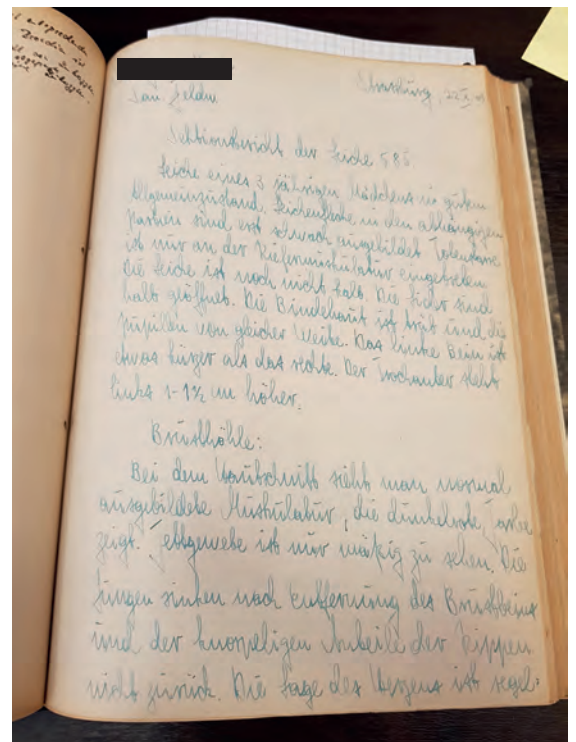 San Feldm
Strassburg, 22
Sektionsbericht der Leiche 585.
Leiche eines 3 jährigen Mädchens in gutem
Allgemeinzustand. Leichenflecke in den abhängigen
Partien sind erst schwach ausgebildet Totenstarre
ist nur an der Kiefermuskulatur eingetreten
Die Leiche ist noch nicht kalt. Die Lider sind
halb geöffnet. Die Bindehaut ist trüb und die
Pupillen von gleicher Weite. Das linke Bein ist
etwas kürzer als das rechte. Der Trochanter steht
links 1-1½ cm höher.
Brusthöhle:
Bei dem Hautschnitt sieht man normal
ausgebildete Muskulatur, die dunkelrote Farbe
zeigt. Fettgewebe ist nur mäßig zu sehen. Die
Lungen sinken nach Entfernung des Brustbeins
und der knorpeligen Anteile der Rippen
nicht zurück. Die Lage des Herzens ist regel-